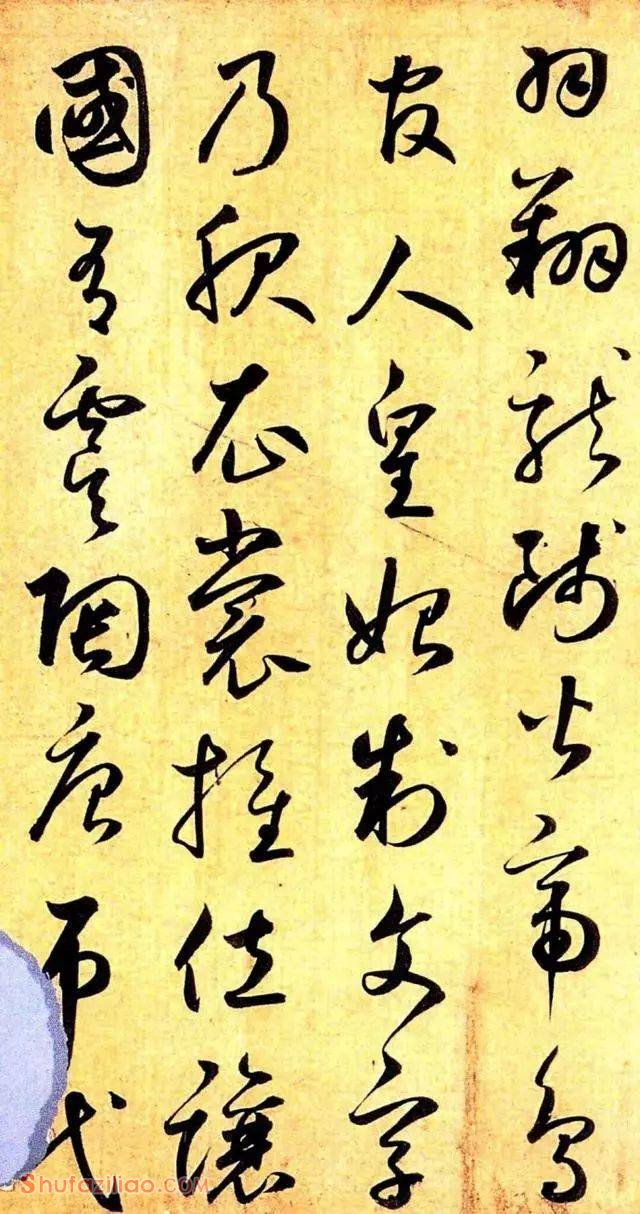 羽翔龍師火帝鳥
官人皇始制文字
乃服衣裳推位讓
國有虞陶唐弔民
Shufaziliao.com